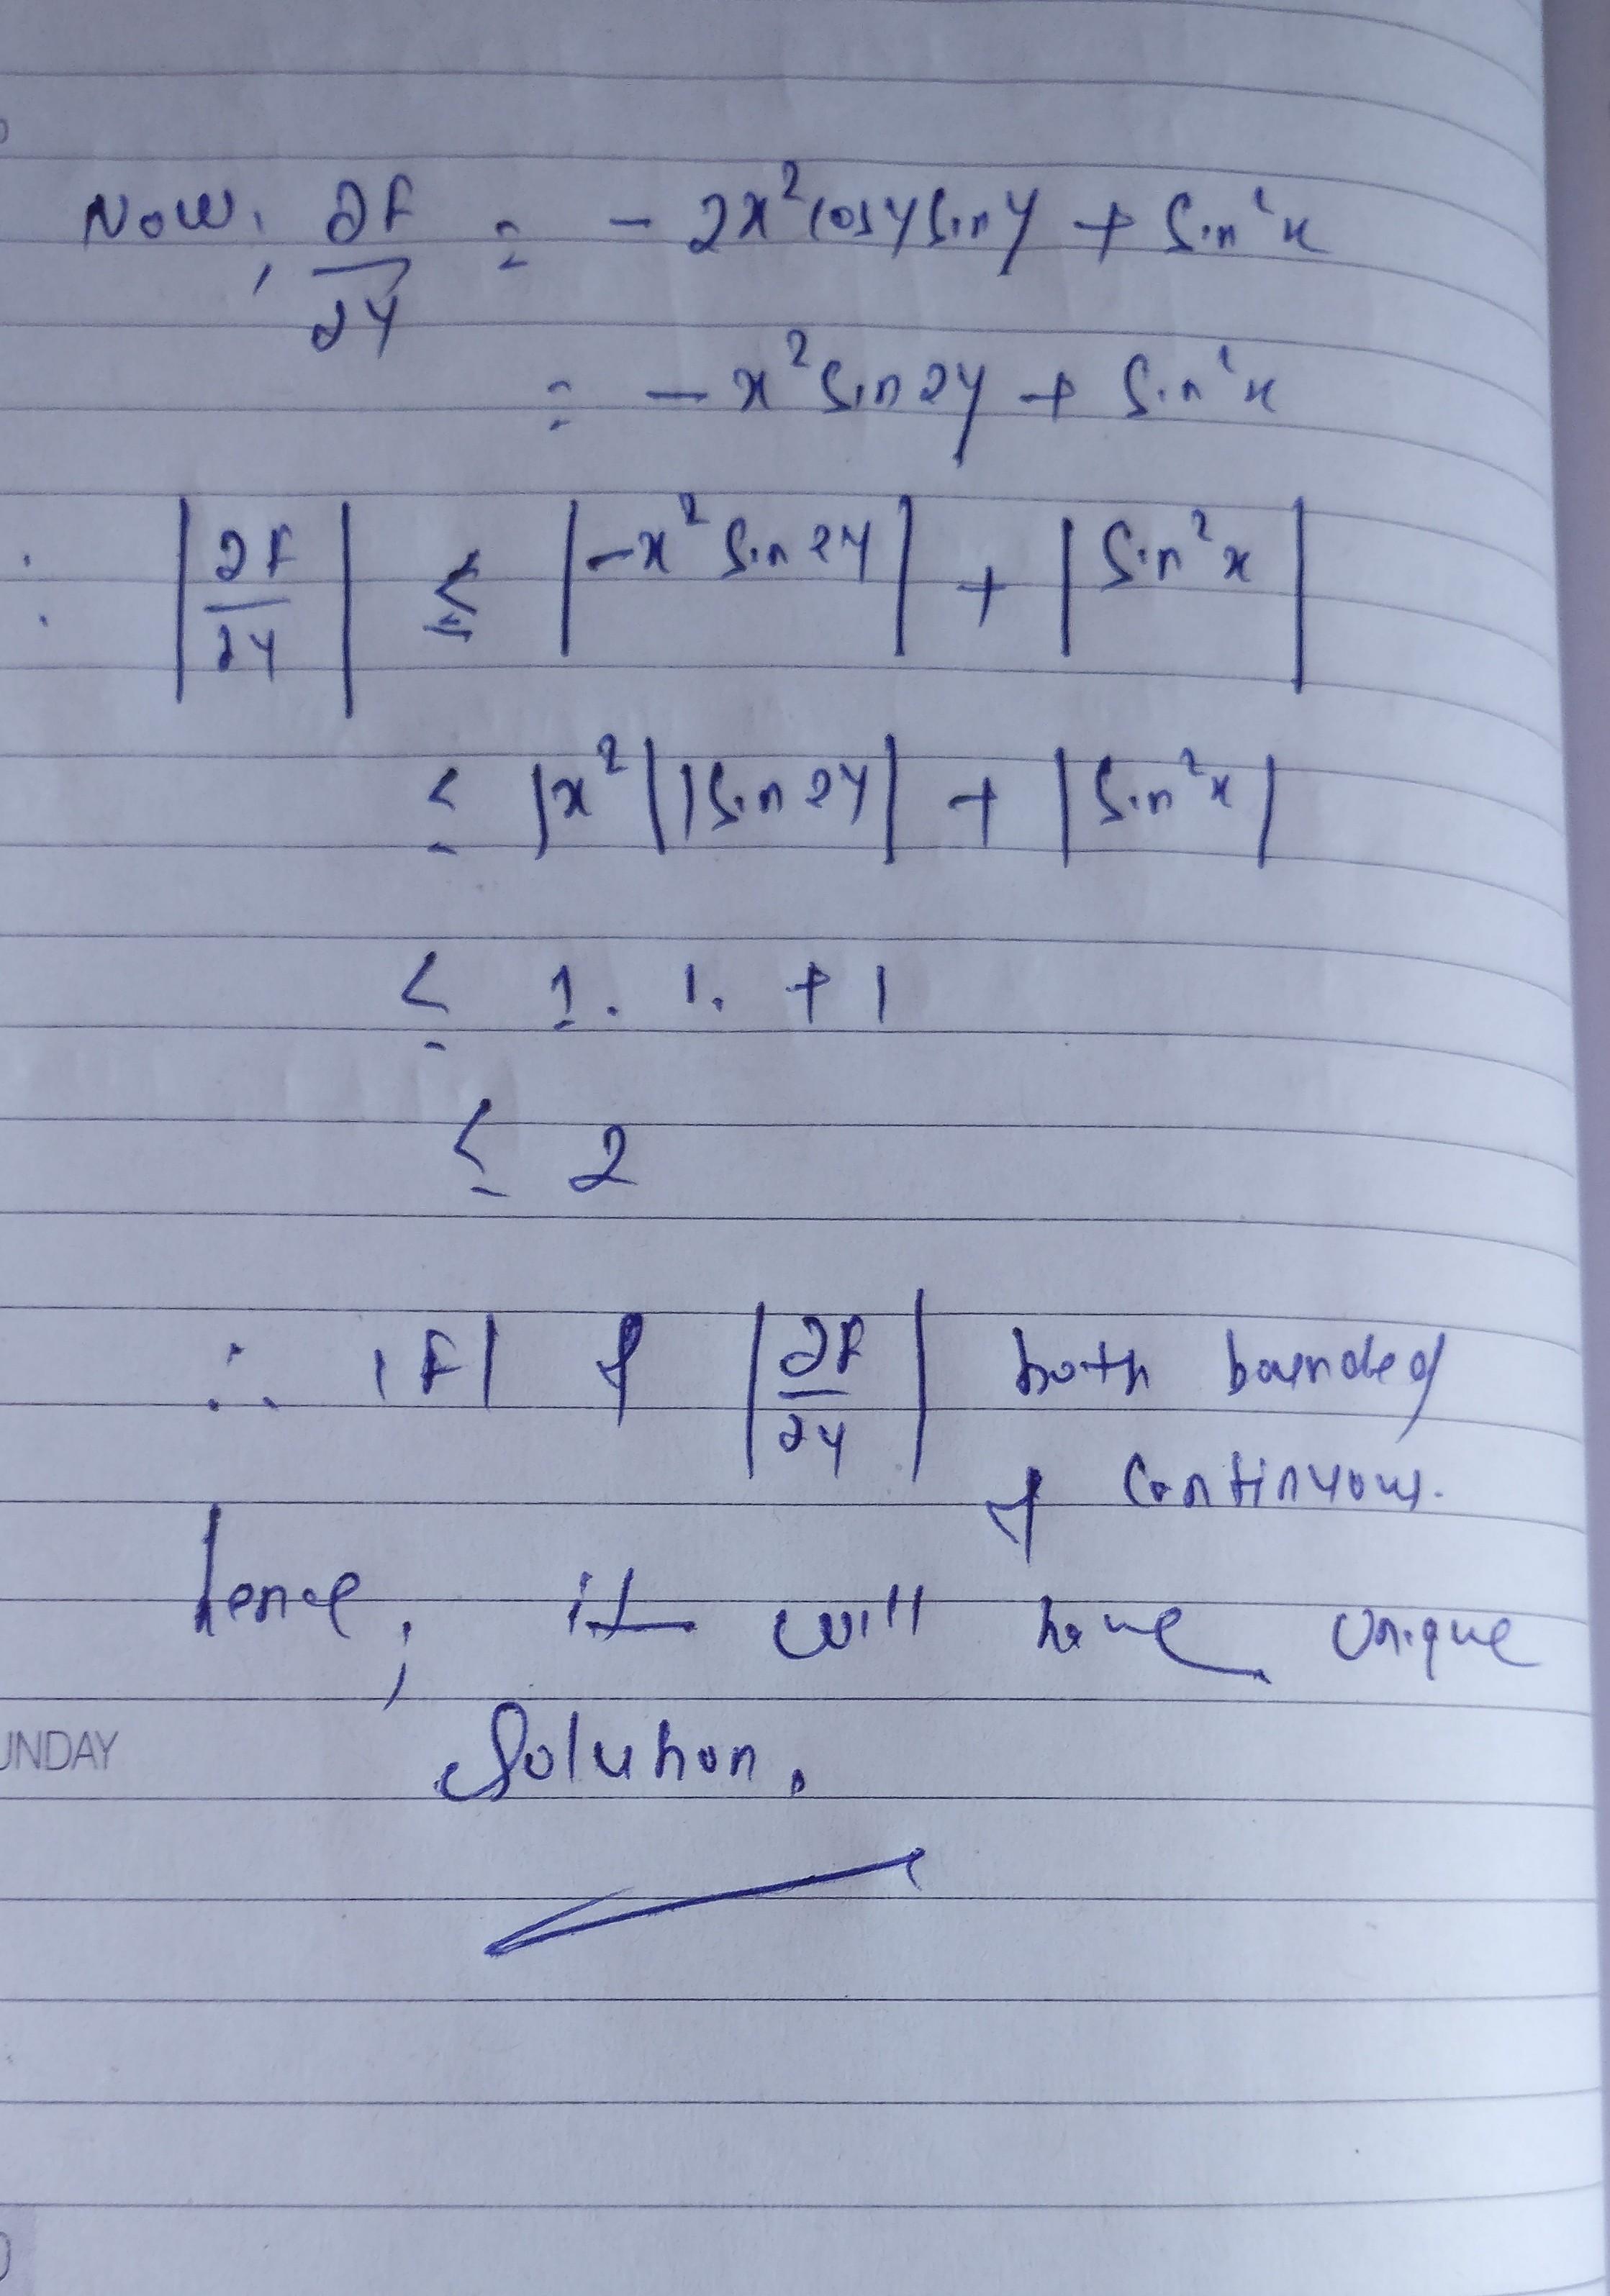 Now, ∂F/∂y = - 2x² cosy siny + Sin²x
= - x² Sin2y + Sin²x
∴ |∂F/∂y| ≤ |-x² Sin2y| + |Sin²x|
≤ |x²| |Sin2y| + |Sin²x|
≤ 1. 1. + 1
≤ 2
∴ |F| & |∂F/∂y| both bounded
& Continuous.
hence, it will have unique
UNDAY
Solution.